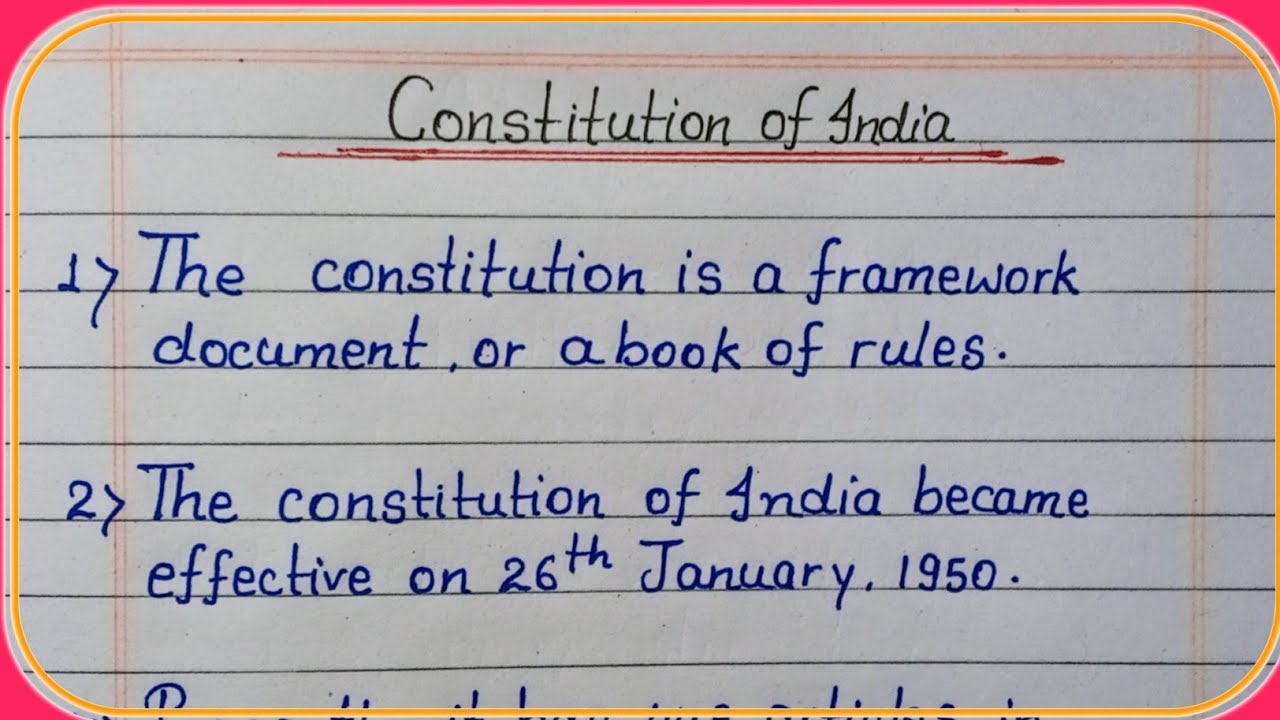 Constitution of India
1) The constitution is a framework
document, or a book of rules.
2) The constitution of India became
effective on 26th January, 1950.